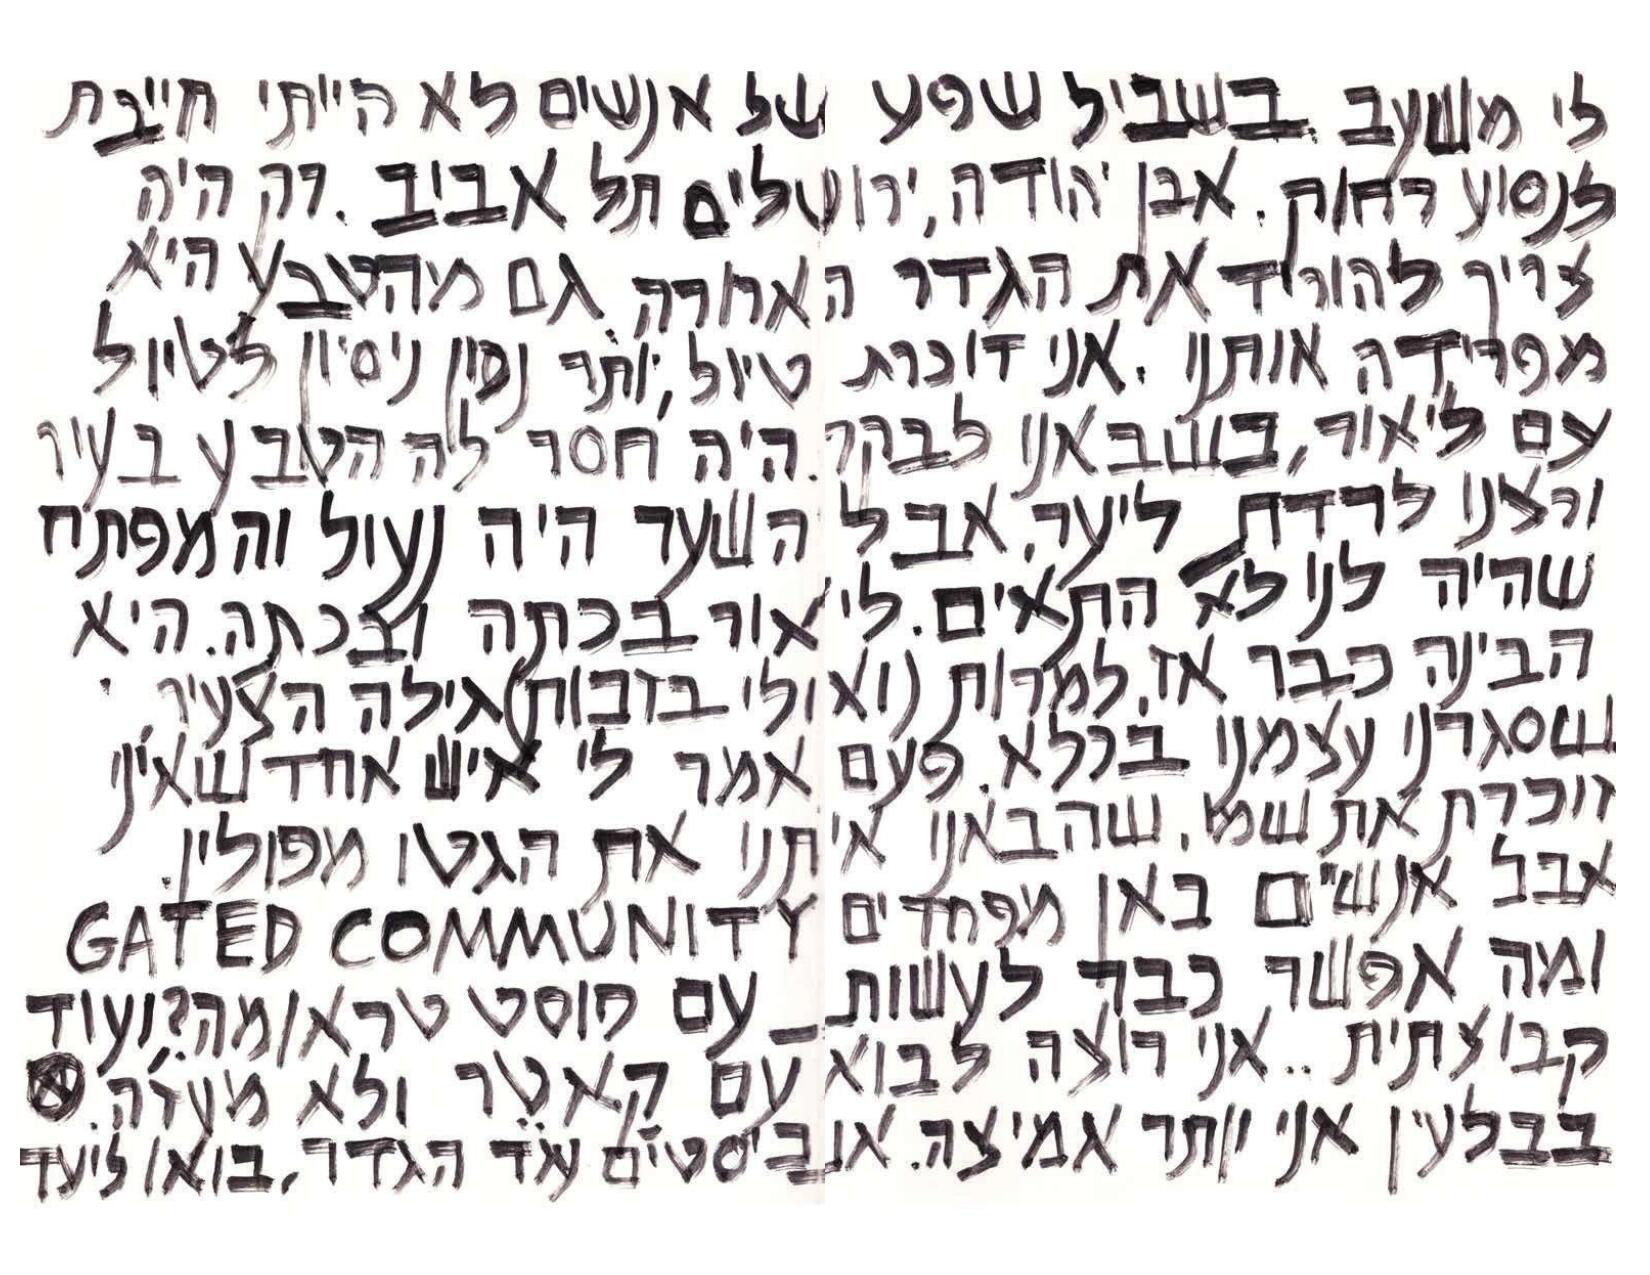 לי משעב. בשביל שפע של אנשים לא הייתי חייבת
לנסוע רחוק. אבן יהודה, ירושלים תל אביב. רק היה
צריך להוריד את הגדר הארורה. גם מהטבע היא
מפרידה אותנו. אני זוכרת טיול, יותר נכון ניסיון לטיול
עם ליאור, כשבאנו לבקר. היה חסר לה הטבע בעיר
ורצנו לרדת ליער. אבל השער היה נעול והמפתח
שהיה לנו לא התאים. ליאור בכתה ובכתה. היא
הבינה כבר אז, למרות (ואולי בזכות) גילה הצעיר,
שסגרנו עצמנו בכלא. פעם אמר לי איש אחד שאיני
זוכרת את שמו, שהבאנו איתנו את הגטו מפולין.
אבל אנשים כאן מפחדים GATED COMMUNITY
ומה אפשר כבר לעשות _ עם פוסט טראומה?
קבוצתית .. אני רוצה לבוא עם קאטר ולא מעזה.
בבלעין אני יותר אמיצה. הגדר, בואו ליער